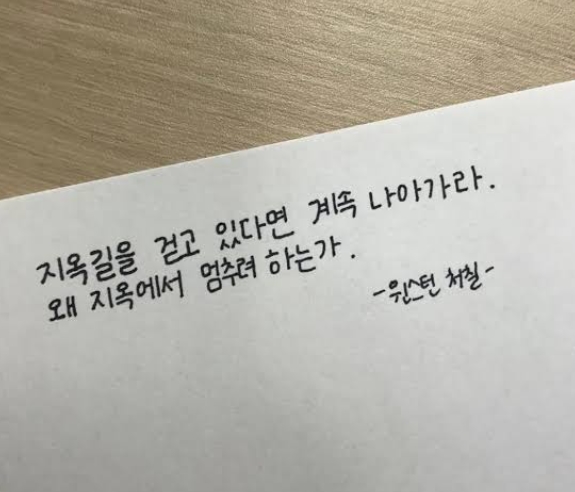 지옥길을 걷고 있다면 계속 나아가라.
왜 지옥에서 멈추려 하는가.
-윈스턴 처칠-